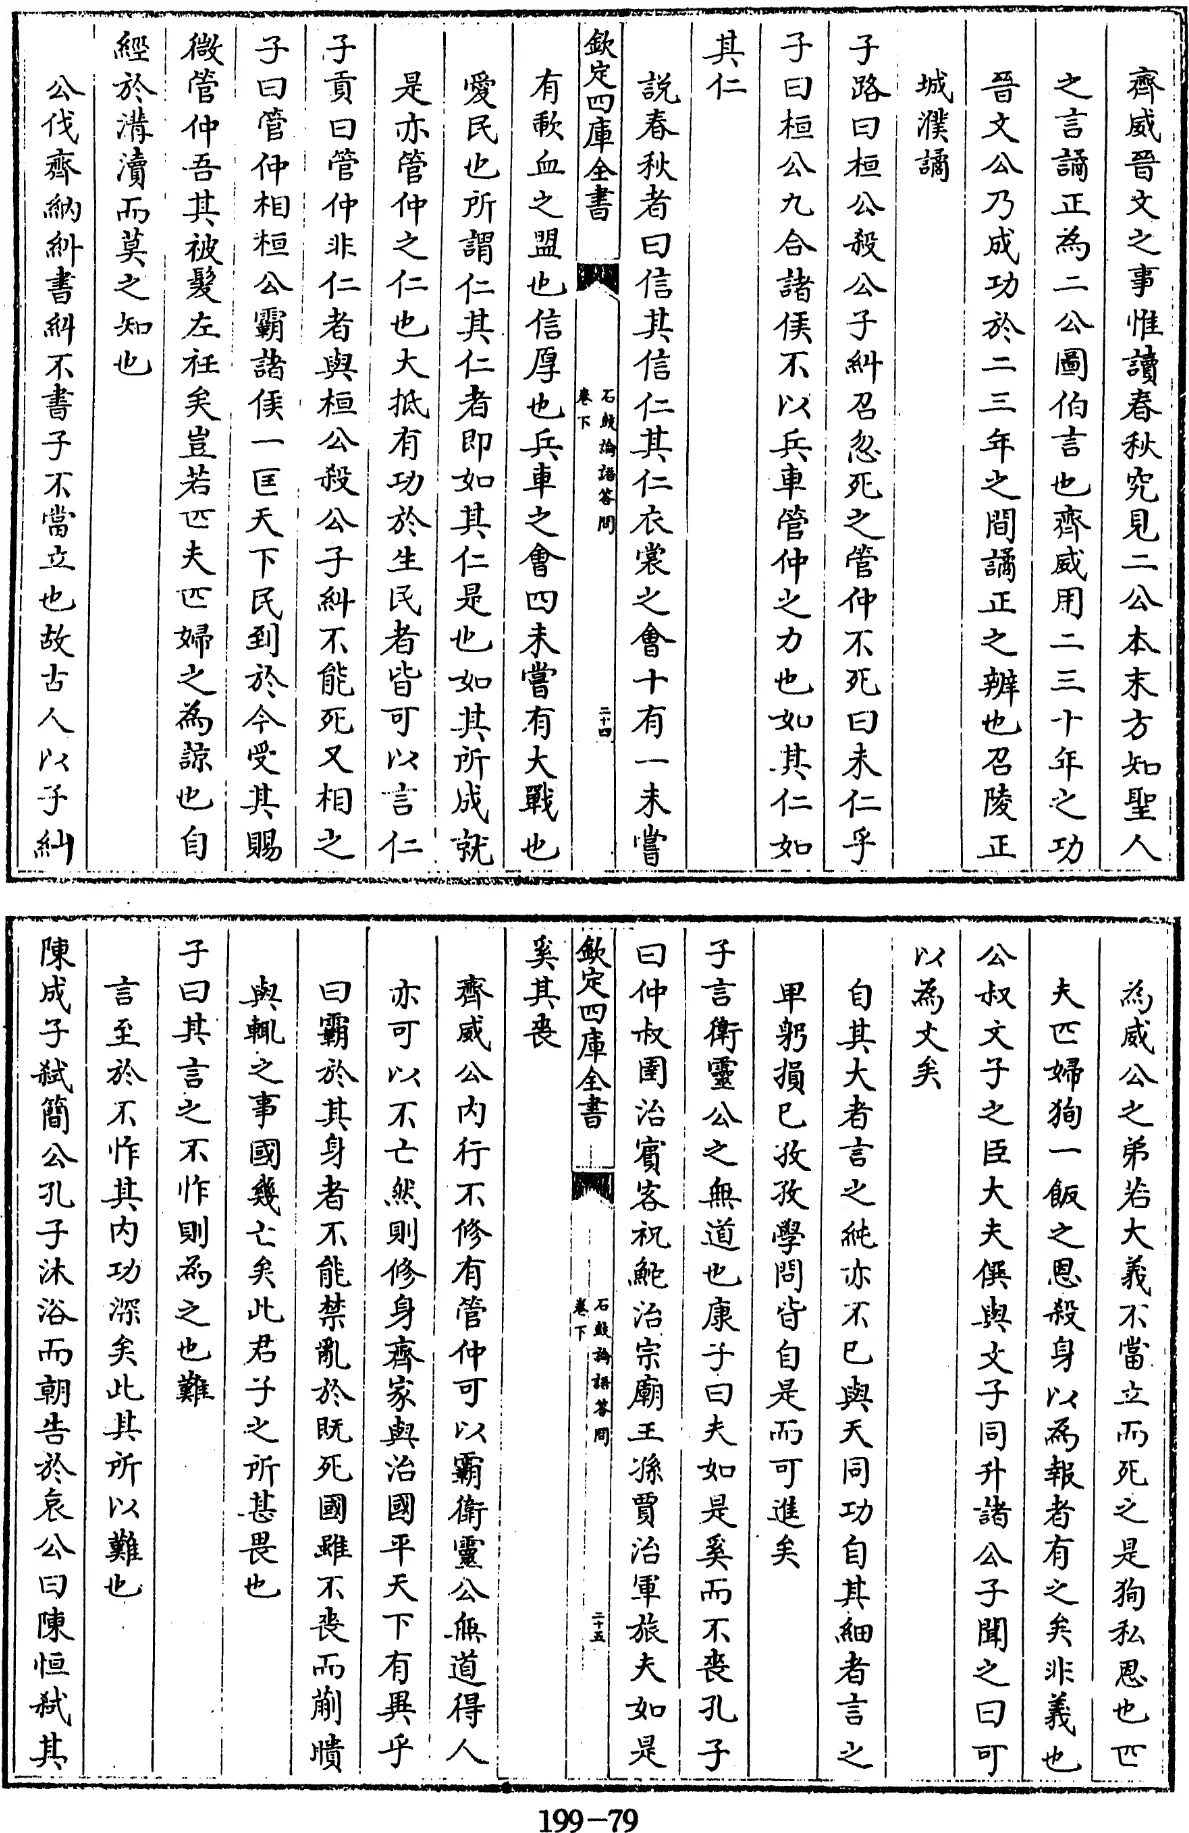 齊威晉文之事惟讀春秋究見二公本末方知聖人
之言譎正為二公圖伯言也齊威用二三十年之功
晉文公乃成功於二三年之間譎正之辨也召陵正
城濮譎
子路曰桓公殺公子糾召忽死之管仲不死曰未仁乎
子曰桓公九合諸侯不以兵車管仲之力也如其仁如
其仁
說春秋者曰信其信仁其仁衣裳之會十有一未嘗
欽定四庫全書
石鼓論語答問
卷下
二十四
有歃血之盟也信厚也兵車之會四未嘗有大戰也
愛民也所謂仁其仁者即如其仁是也如其所成就
是亦管仲之仁也大抵有功於生民者皆可以言仁
子貢曰管仲非仁者與桓公殺公子糾不能死又相之
子曰管仲相桓公霸諸侯一匡天下民到於今受其賜
微管仲吾其被髮左衽矣豈若匹夫匹婦之為諒也自
經於溝瀆而莫之知也
公伐齊納糾書糾不書子不當立也故古人以子糾
為威公之弟若大義不當立而死之是狥私恩也匹
夫匹婦狥一飯之恩殺身以為報者有之矣非義也
公叔文子之臣大夫僎與文子同升諸公子聞之曰可
以為文矣
自其大者言之純亦不已與天同功自其細者言之
卑躬損已孜孜學問皆自是而可進矣
子言衛靈公之無道也康子曰夫如是奚而不喪孔子
曰仲叔圉治賓客祝鮀治宗廟王孫賈治軍旅夫如是
欽定四庫全書
石鼓論語答問
卷下
二十五
奚其喪
齊威公内行不修有管仲可以霸衛靈公無道得人
亦可以不亡然則修身齊家與治國平天下有異乎
曰霸於其身者不能禁亂於既死國雖不喪而蒯聵
與輒之事國幾亡矣此君子之所甚畏也
子曰其言之不怍則為之也難
言至於不怍其内功深矣此其所以難也
陳成子弑簡公孔子沐浴而朝告於哀公曰陳恒弑其
199-79